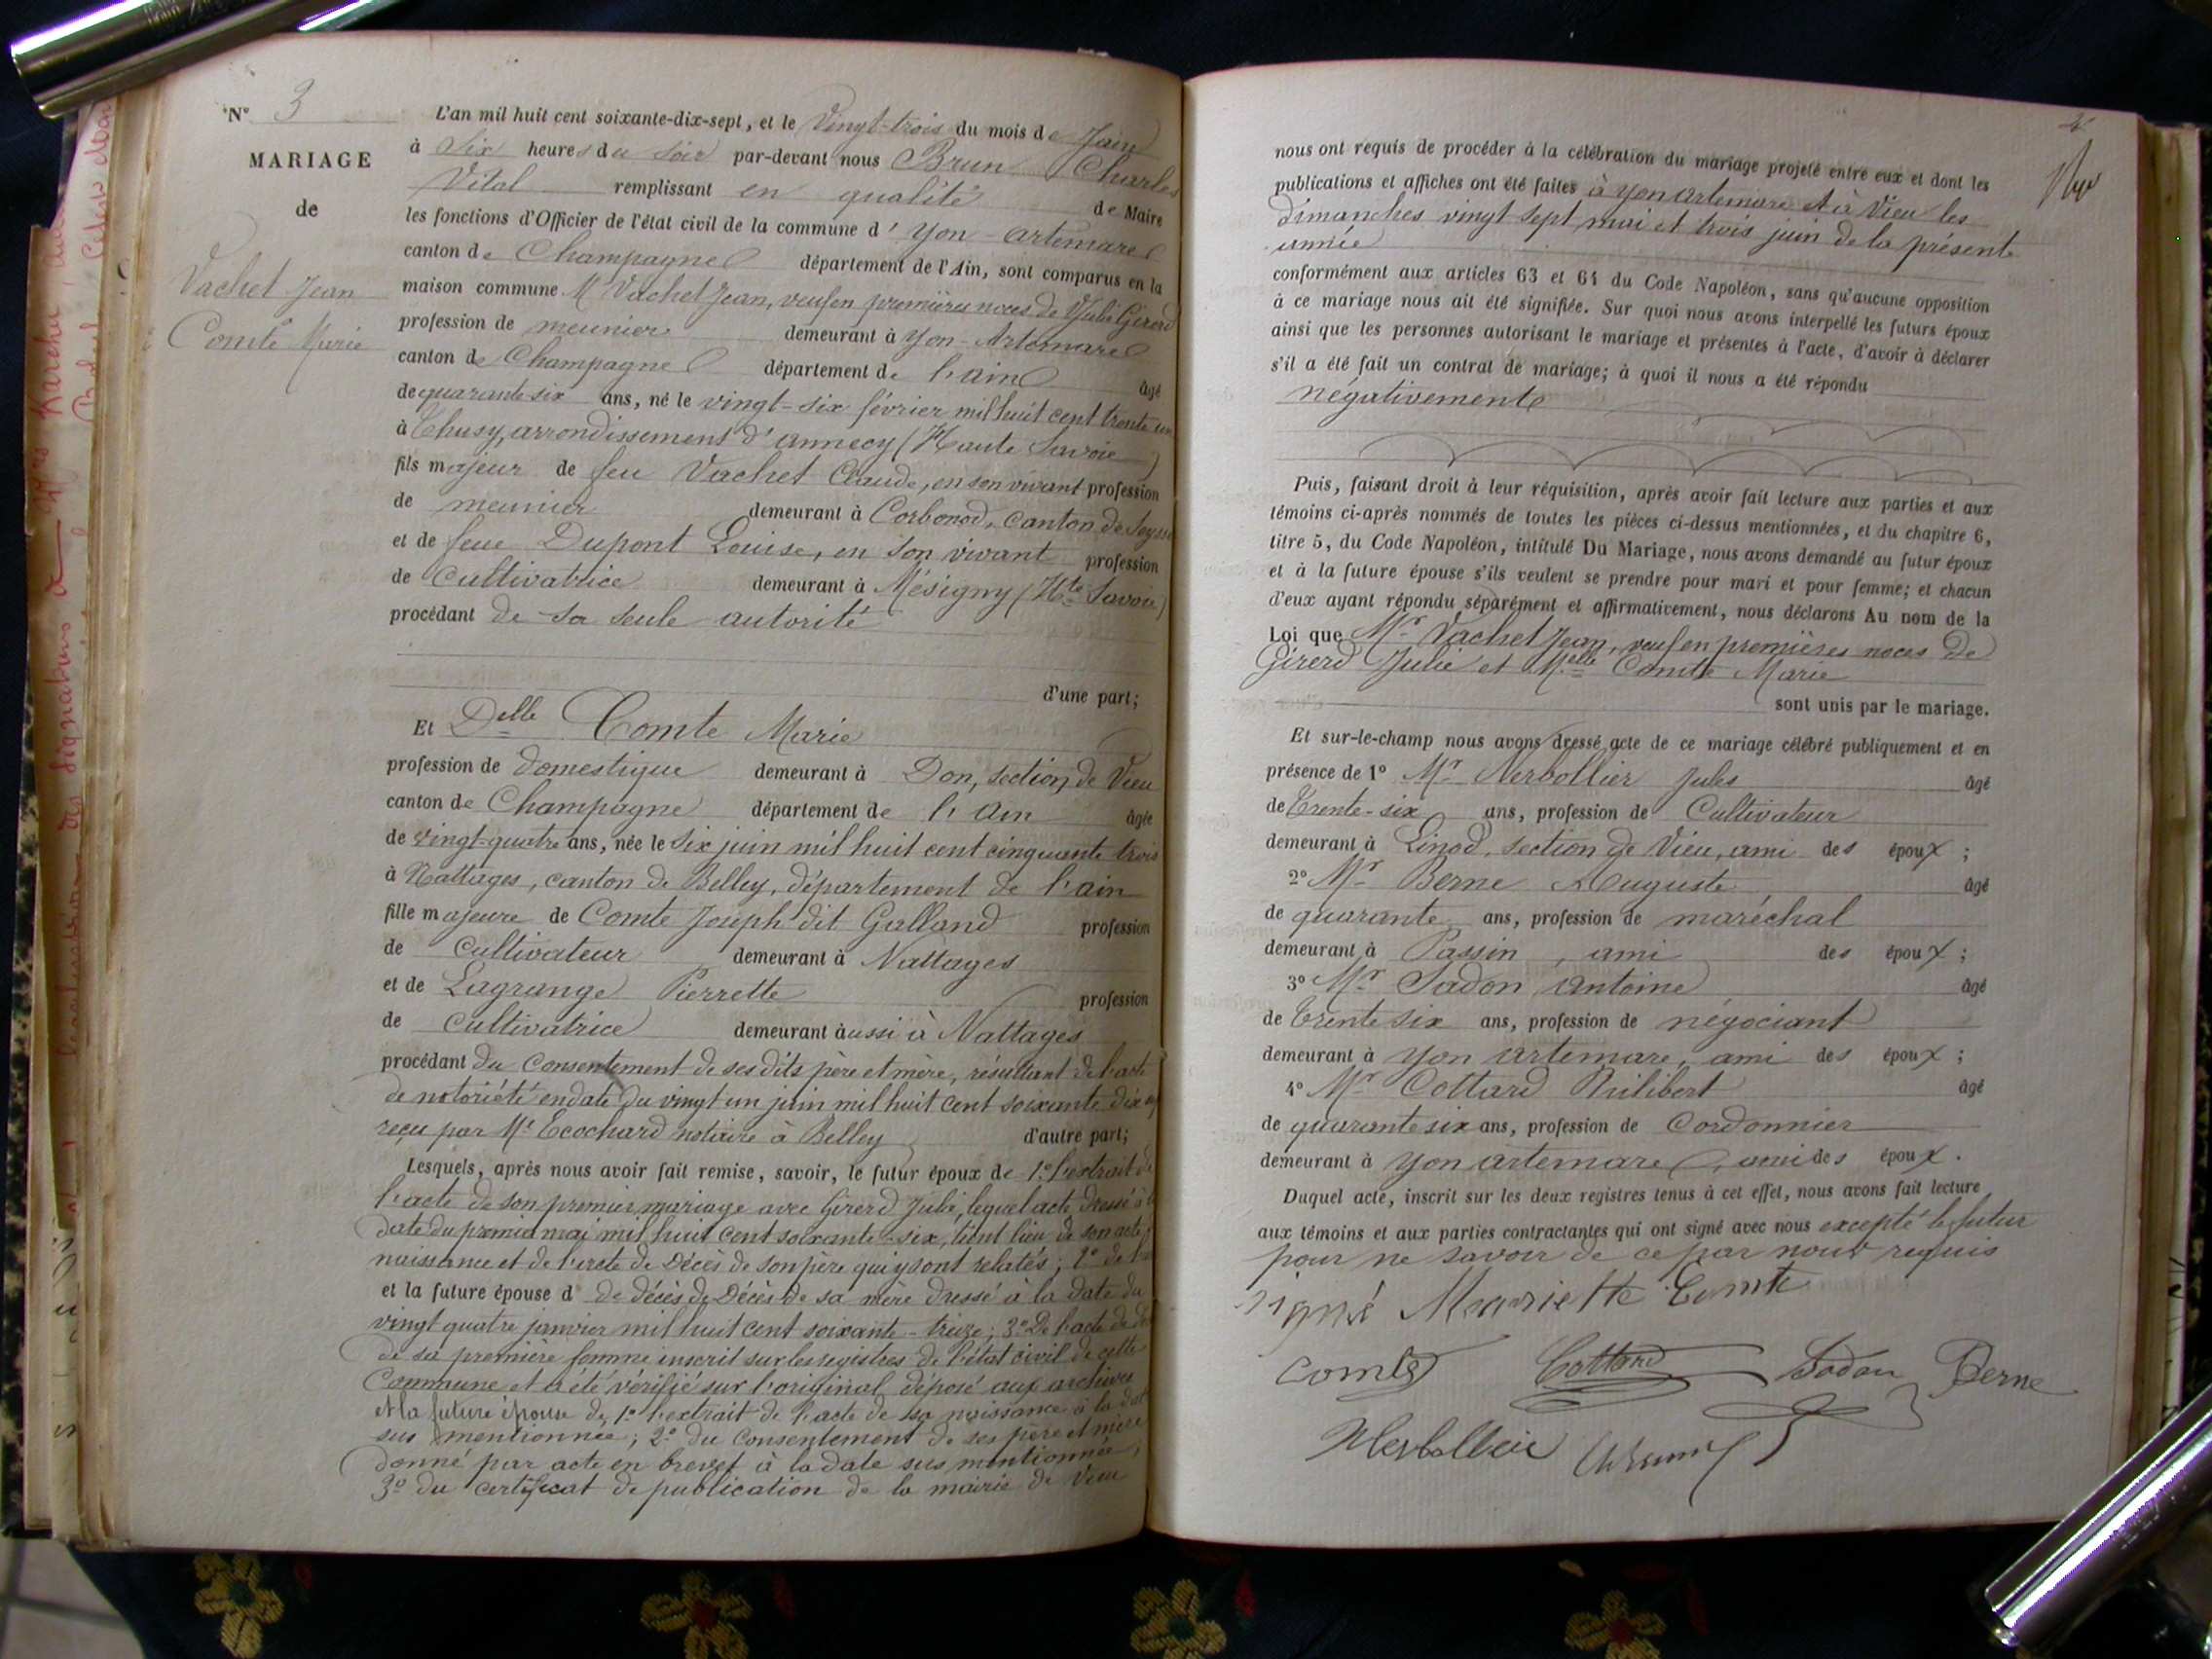 N° 3
MARIAGE
de
Vachet Jean
Comte Marie
L'an mil huit cent soixante-dix-sept, et le Vingt-trois du mois de Juin
à Six heures du soir par-devant nous Brun Charles
Vital remplissant en qualité de Maire
les fonctions d'Officier de l'état civil de la commune d' Yon-Artemare
canton de Champagne département de l'Ain, sont comparus en la
maison commune Mr Vachet Jean, veuf en premières noces de Julie Girerd
profession de meunier demeurant à Yon-Artemare
canton de Champagne département de l'ain âgé
de quarante six ans, né le vingt-six février mil huit cent trente un
à Thusy, arrondissement d'annecy (Haute Savoie)
fils majeur de feu Vachet Claude, en son vivant profession
de meunier demeurant à Corbonod, canton de Seyssel
et de feue Dupont Louise, en son vivant profession
de Cultivatrice demeurant à Mésigny (Hte Savoie)
procédant de sa seule autorité
d'une part;
Et Delle Comte Marie
profession de domestique demeurant à Don, section de Vieu
canton de Champagne département de l'Ain âgée
de vingt-quatre ans, née le six juin mil huit cent cinquante trois
à Nattages, canton de Belley, département de l'ain
fille majeure de Comte Joseph dit Galland profession
de cultivateur demeurant à Nattages
et de Lagrange Pierrette profession
de cultivatrice demeurant à aussi à Nattages
procédant du consentement de ses dits père et mère, résultant de l'acte
de notoriété en date du vingt un juin mil huit cent soixante dix sept
reçu par Me Ecochard notaire à Belley d'autre part;
Lesquels, après nous avoir fait remise, savoir, le futur époux de 1° l'extrait de
l'acte de son premier mariage avec Girerd Julie, lequel acte dressé à la
date du premier mai mil huit cent soixante-six, tient lieu de son acte
naissance et de l'acte de Décès de son père qui y sont relatés; 2° de l'
et la future épouse d de décès de Décès de sa mère dressé à la date du
vingt quatre janvier mil huit cent soixante-treize; 3° De l'acte de
de sa première femme inscrit sur les registres de l'état civil de cette
Commune et a été vérifié sur l'original déposé aux archives
et la future épouse de 1° l'extrait de l'acte de sa naissance à la date
sus mentionnée; 2° du consentement de ses père et mère
donné par acte en brevet à la date sus mentionnée;
3° du certificat de publication de la mairie de Vieu
nous ont requis de procéder à la célébration du mariage projeté entre eux et dont les
publications et affiches ont été faites à Yon Artemare et à Vieu les
dimanches vingt sept mai et trois juin de la présente
année
conformément aux articles 63 et 64 du Code Napoléon, sans qu'aucune opposition
à ce mariage nous ait été signifiée. Sur quoi nous avons interpellé les futurs époux
ainsi que les personnes autorisant le mariage et présentes à l'acte, d'avoir à déclarer
s'il a été fait un contrat de mariage; à quoi il nous a été répondu
négativement
Puis, faisant droit à leur réquisition, après avoir fait lecture aux parties et aux
témoins ci-après nommés de toutes les pièces ci-dessus mentionnées, et du chapitre 6,
titre 5, du Code Napoléon, intitulé Du Mariage, nous avons demandé au futur époux
et à la future épouse s'ils veulent se prendre pour mari et pour femme; et chacun
d'eux ayant répondu séparément et affirmativement, nous déclarons Au nom de la
Loi que Mr Vachet Jean, veuf en premières noces de
Girerd Julie et Melle Comte Marie
sont unis par le mariage.
Et sur-le-champ nous avons dressé acte de ce mariage célébré publiquement et en
présence de 1° Mr Nerbollier Jules âgé
de Trente-six ans, profession de Cultivateur
demeurant à Linod, section de Vieu, ami des époux;
2° Mr Berne Auguste âgé
de quarante ans, profession de maréchal
demeurant à Passin, ami des époux;
3° Mr Sadon Antoine âgé
de trente six ans, profession de négociant
demeurant à Yon artemare, ami des époux;
4° Mr Cottard Philibert âgé
de quarante six ans, profession de Cordonnier
demeurant à Yon artemare, ami des époux.
Duquel acte, inscrit sur les deux registres tenus à cet effet, nous avons fait lecture
aux témoins et aux parties contractantes qui ont signé avec nous excepté le futur
pour ne savoir de ce par nous requis
signé Mariette Comte
Comte Cottard Sadon Berne
Nerbollier